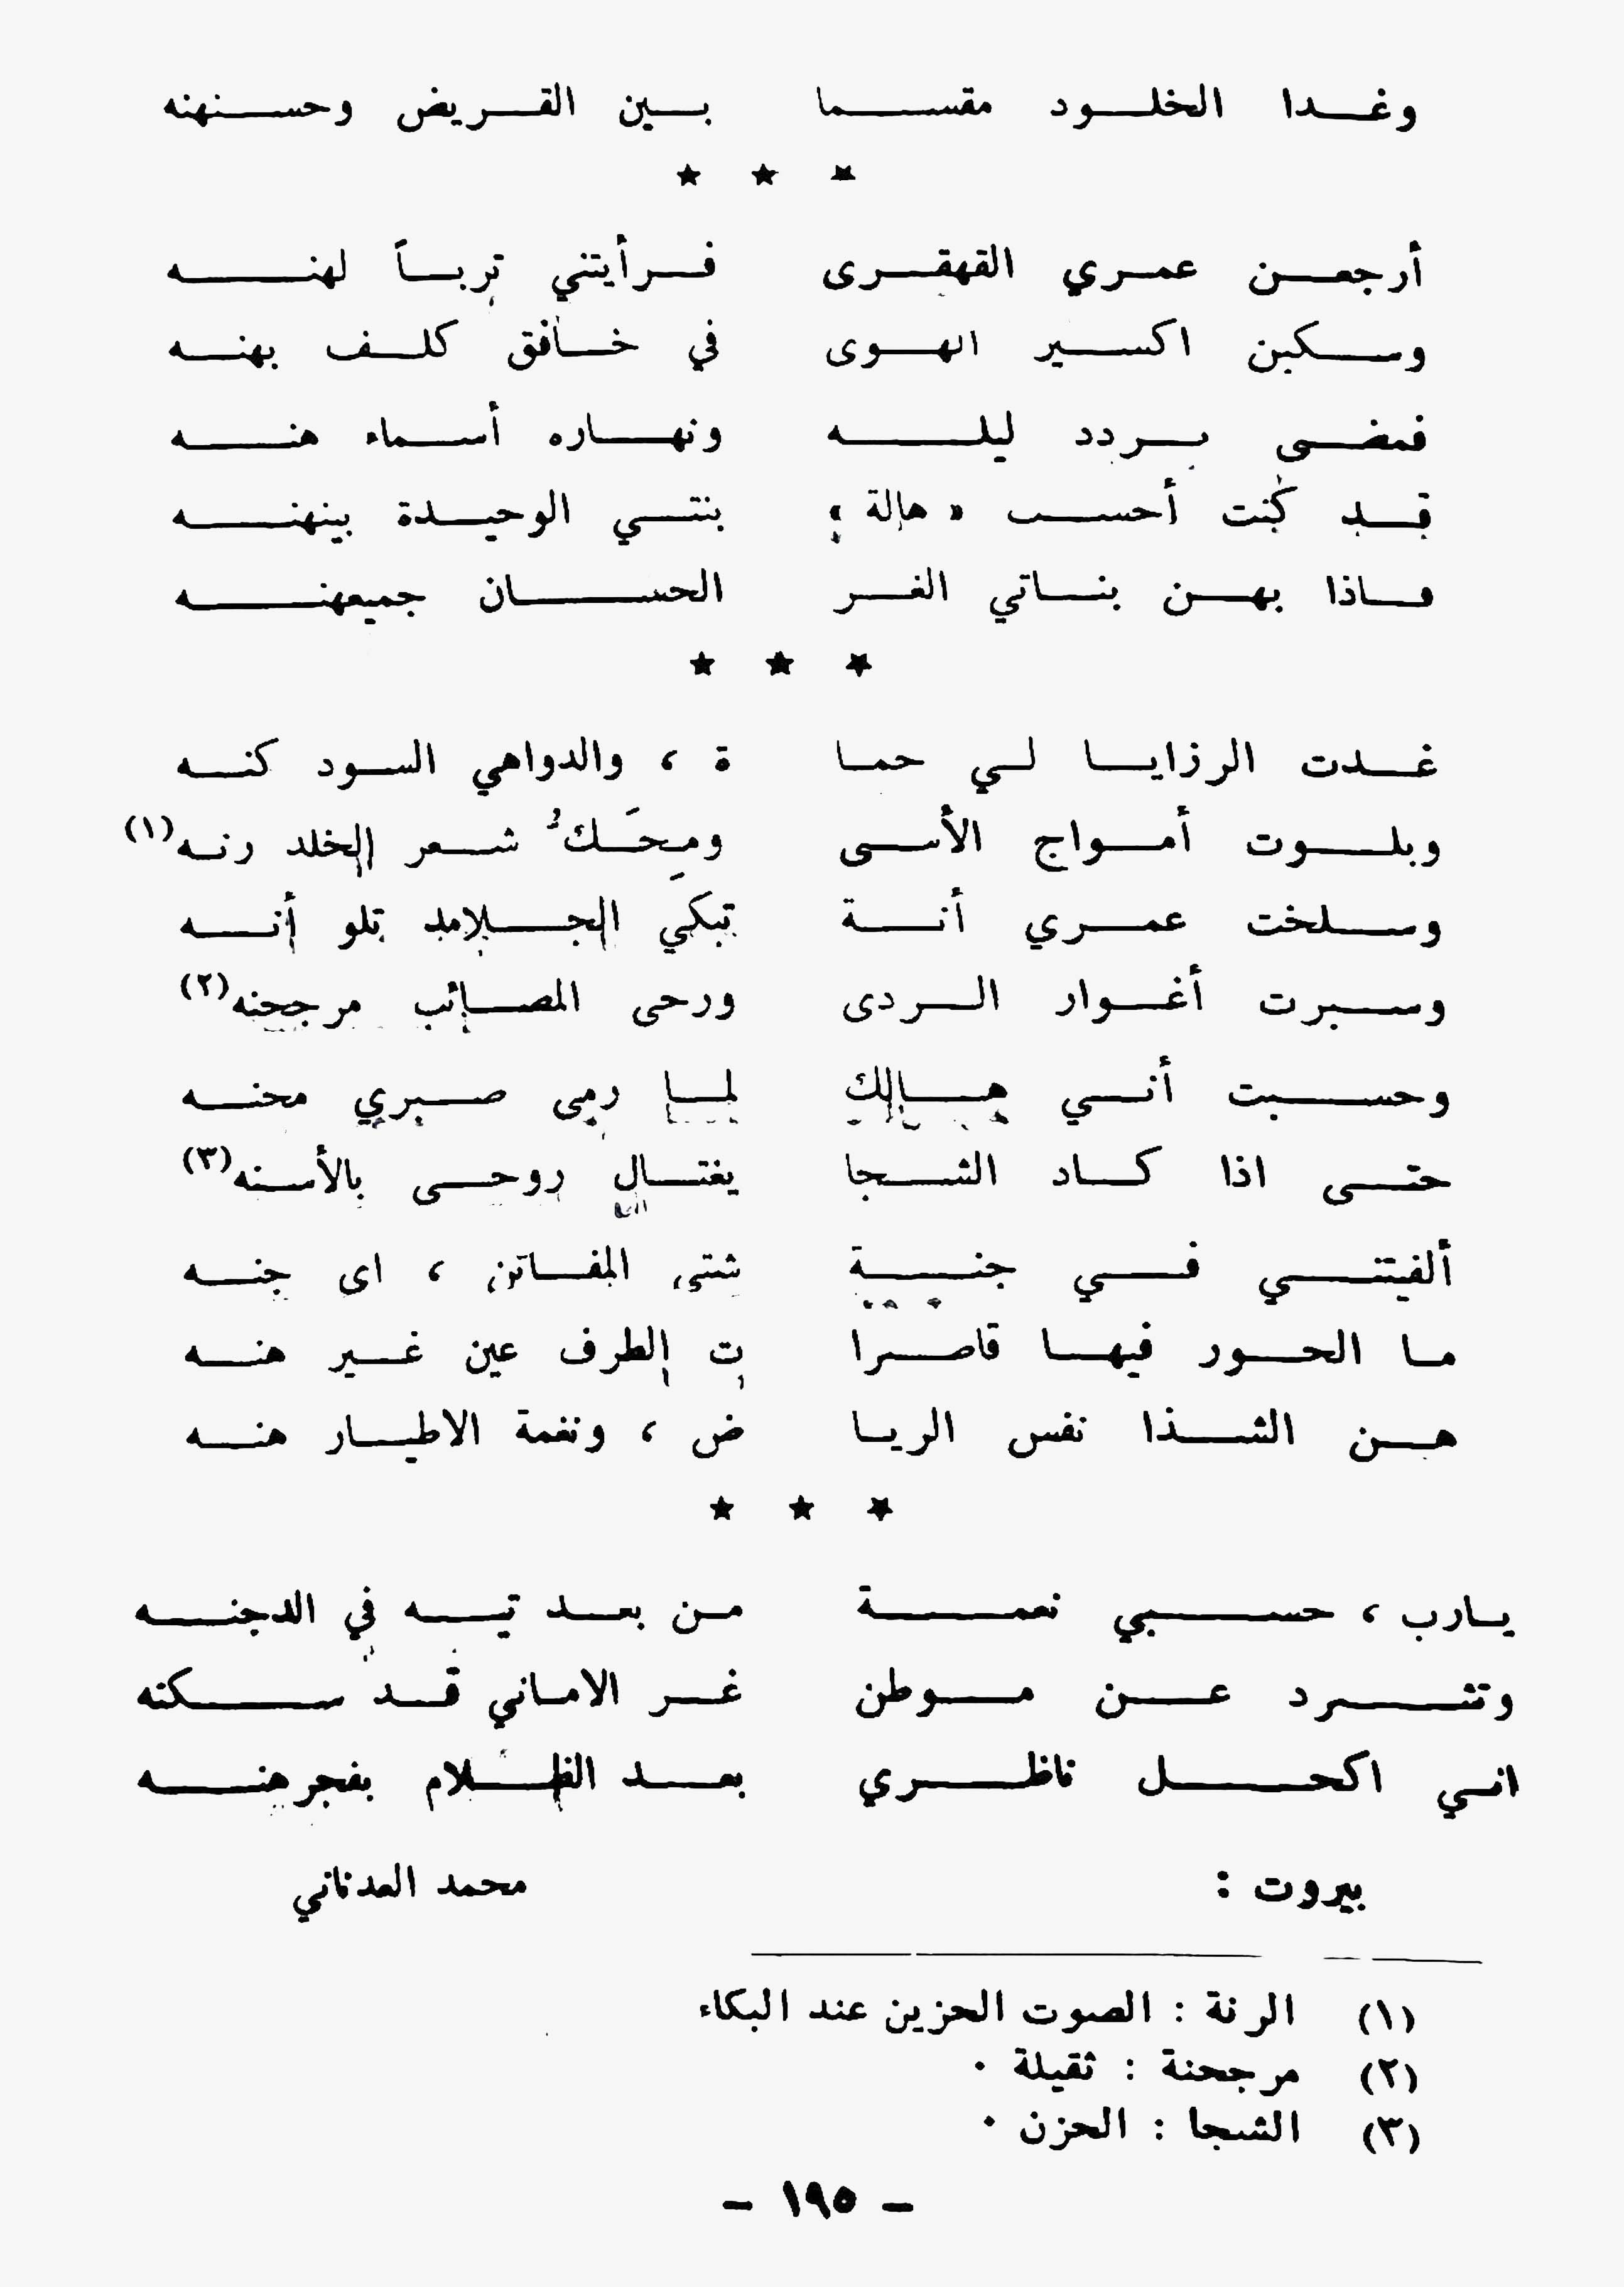 وغدا الخلود مقسما بين القريض وحسنهنه
★ ★ ★
أرجعن عمري القهقرى فرأيتني تربـاً لهنه
وسكبن اكسير الهوى في خافق كلف بهنه
فمضى يردد ليله ونهاره أسماء هنه
قد كنت أحسب « هالة » بنتي الوحيدة بينهنه
فاذا بهن بناتي الغر الحسان جميعهنه
★ ★ ★
غدت الرزايا لي حما ة ، والدواهي السود كنه
وبلوت أمواج الأسى ومِحَكُّ شعر الخلد رنه(١)
وسلخت عمري أنة تبكي الجلامد تلو أنه
وسبرت أغوار الردى ورحى المصائب مرجحنه(٢)
وحسبت أني هالك لما رمى صبري محنه
حتى اذا كاد الشجا يغتال روحي بالأسنه(٣)
ألفيتني في جنية شتى المفاتن ، اى جنه
ما الحور فيها قاصرا ت الطرف عين غير هنه
هن الشذا نفس الريا ض ، ونغمة الاطيار هنه
★ ★ ★
يارب ، حسبي نعمة من بعد تيه في الدجنه
وتشرد عن موطن غر الاماني قد سكنه
اني اكحل ناظري بعد الظلام بفجرهنه
بيروت : محمد العدناني
(١) الرنة : الصوت الحزين عند البكاء
(٢) مرجحنة : ثقيلة ٠
(٣) الشجا : الحزن ٠
- ١٩٥ -